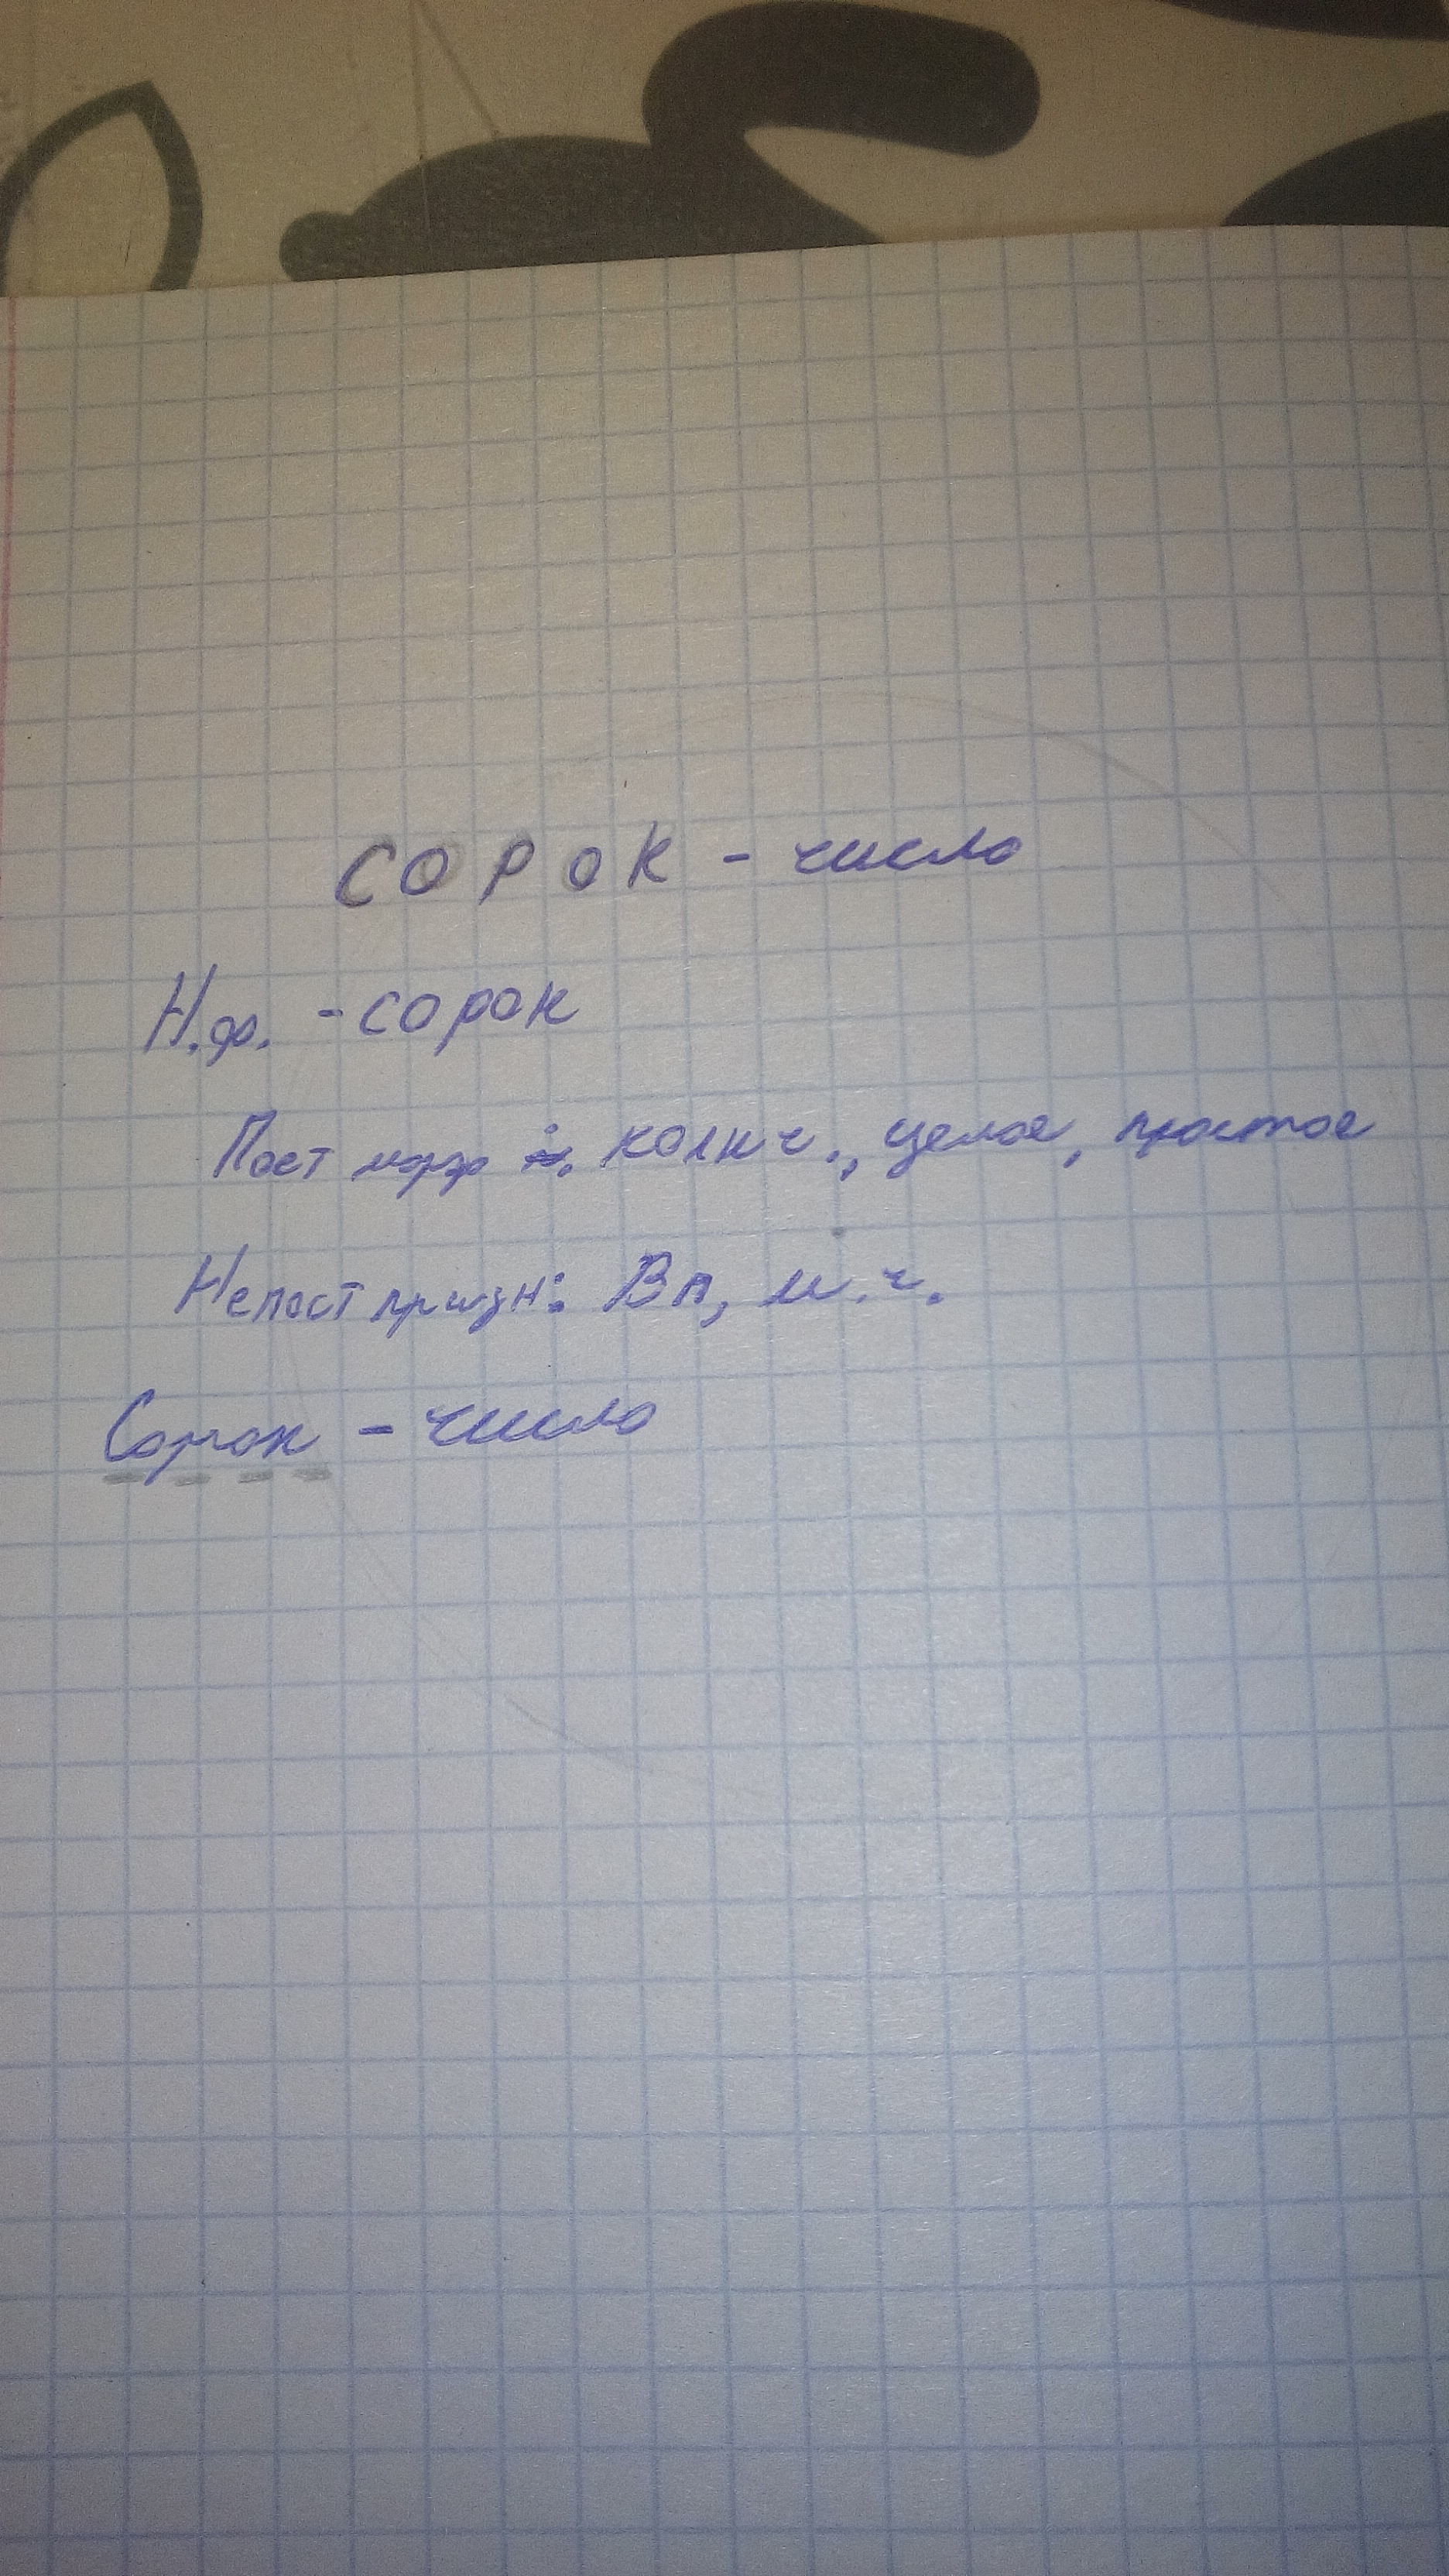 СОРОК - число
Н.ф. - сорок
Пост морф : колич., целое, простое
Непост призн: Вп, м.ч.
Сорок - число